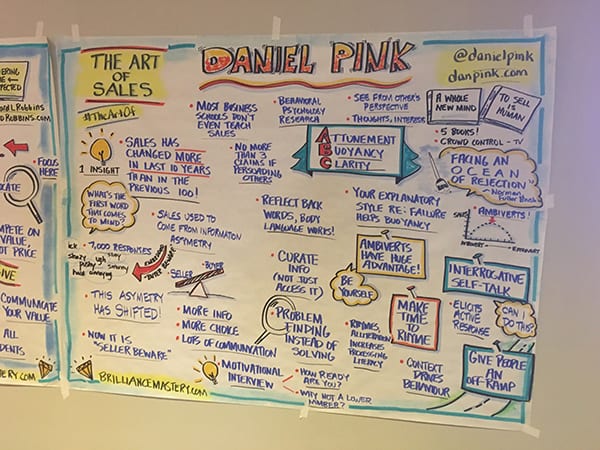 THE ART
OF
SALES
#TheArtOf
DANIEL PINK
@danielpink
danpink.com
1 INSIGHT
• SALES HAS
CHANGED MORE
IN LAST 10 YEARS
THAN IN THE
PREVIOUS 100!
• MOST BUSINESS
SCHOOLS DON'T
EVEN TEACH
SALES
• BEHAVIORAL
PSYCHOLOGY
RESEARCH
• SEE FROM OTHER'S
PERSPECTIVE
• THOUGHTS, INTERESTS
A WHOLE
NEW MIND
TO SELL
IS
HUMAN
• 5 BOOKS!
• CROWD CONTROL - TV
• NO MORE
THAN 3
CLAIMS IF
PERSUADING
OTHERS
ATTUNEMENT
BUOYANCY
CLARITY
FACING AN
OCEAN
OF
REJECTION
- Norman
WHAT'S THE
FIRST WORD
THAT COMES
TO MIND?
• 7,000 RESPONSES
ugh
slimy
pushy
smarmy
hard
annoying
• SALES USED TO
COME FROM INFORMATION
ASYMETRY
SELLER
BUYER
• REFLECT BACK
WORDS, BODY
LANGUAGE WORKS!
• YOUR EXPLANATORY
STYLE RE: FAILURE
HELPS BUOYANCY
SALES
AMBIVERTS!
INTROVERT
EXTROVERT
AMBIVERTS
HAVE HUGE
ADVANTAGE!
• CURATE
INFO
(NOT JUST
ACCESS IT)
BE
YOURSELF
INTERROGATIVE
SELF-TALK
• THIS ASYMETRY
HAS SHIFTED!
• MORE INFO
• MORE CHOICE
• LOTS OF COMMUNICATION
• PROBLEM
FINDING
INSTEAD OF
SOLVING
MAKE
TIME TO
RHYME
• ELICITS
ACTIVE
RESPONSE
CAN I
DO THIS?
• RHYMES,
ALLITERATION
INCREASES
PROCESSING
• NOW IT IS
"SELLER BEWARE"
• MOTIVATIONAL
INTERVIEW
• HOW READY
ARE YOU?
• WHY NOT A LOWER
NUMBER?
• CONTEXT
DRIVES
BEHAVIOUR
GIVE PEOPLE
AN
OFF-RAMP
BRILLIANCEMASTERY.COM
FOCUS
HERE
COMMUNICATE
YOUR VALUE
ALL